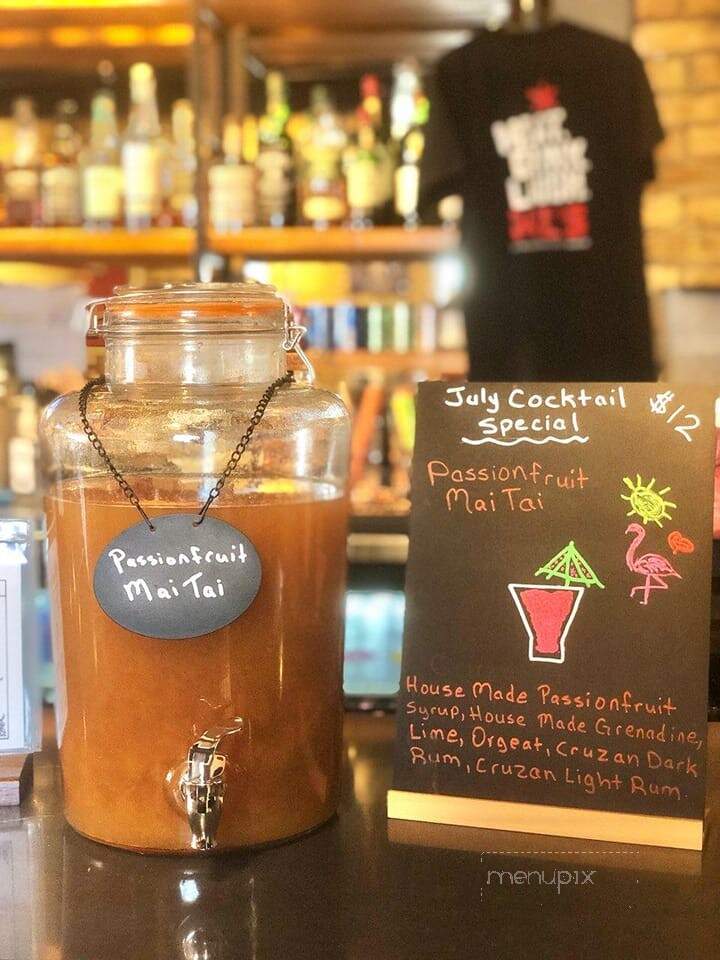 Passionfruit
Mai Tai
July Cocktail
Special
$12
Passionfruit
Mai Tai
House Made Passionfruit
Syrup, House Made Grenadine,
Lime, Orgeat, Cruzan Dark
Rum, Cruzan Light Rum.
menupix